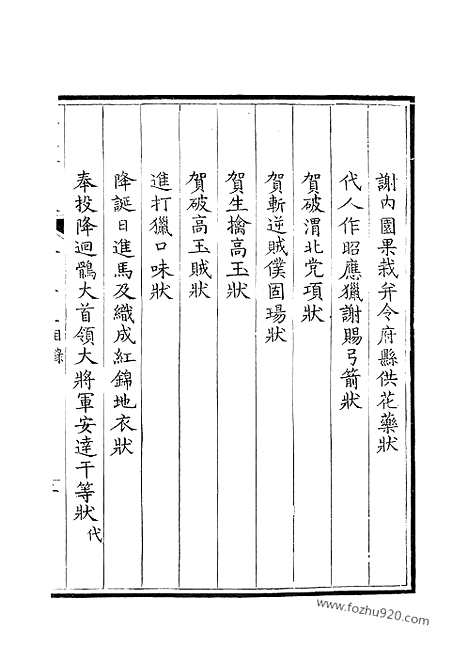 謝內園果栽并令府縣供花藥狀
代人作昭應獵謝賜弓箭狀
賀破渭北党項狀
賀斬逆賊僕固瑒狀
賀生擒高玉狀
賀破高玉賊狀
進打獵口味狀
降誕日進馬及織成紅錦地衣狀
奉投降迴鶻大首領大將軍安達干等狀 代
目錄
www.fozhu920.com